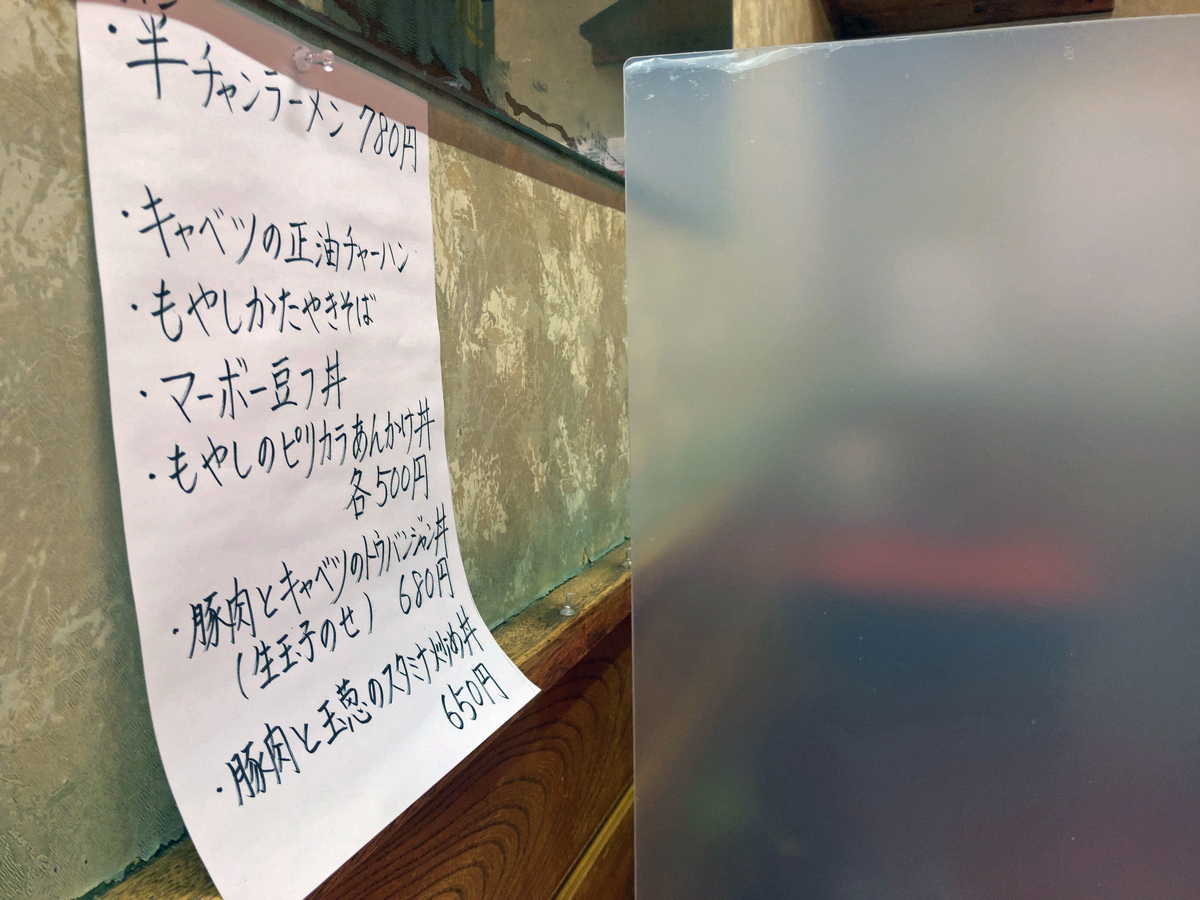 ・半チャンラーメン 780円
・キャベツの正油チャーハン
・もやしかたやきそば
・マーボー豆フ丼
・もやしのピリカラあんかけ丼
各500円
・豚肉とキャベツのトウバンジャン丼
(生玉子のせ) 680円
・豚肉と玉葱のスタミナ炒め丼
650円